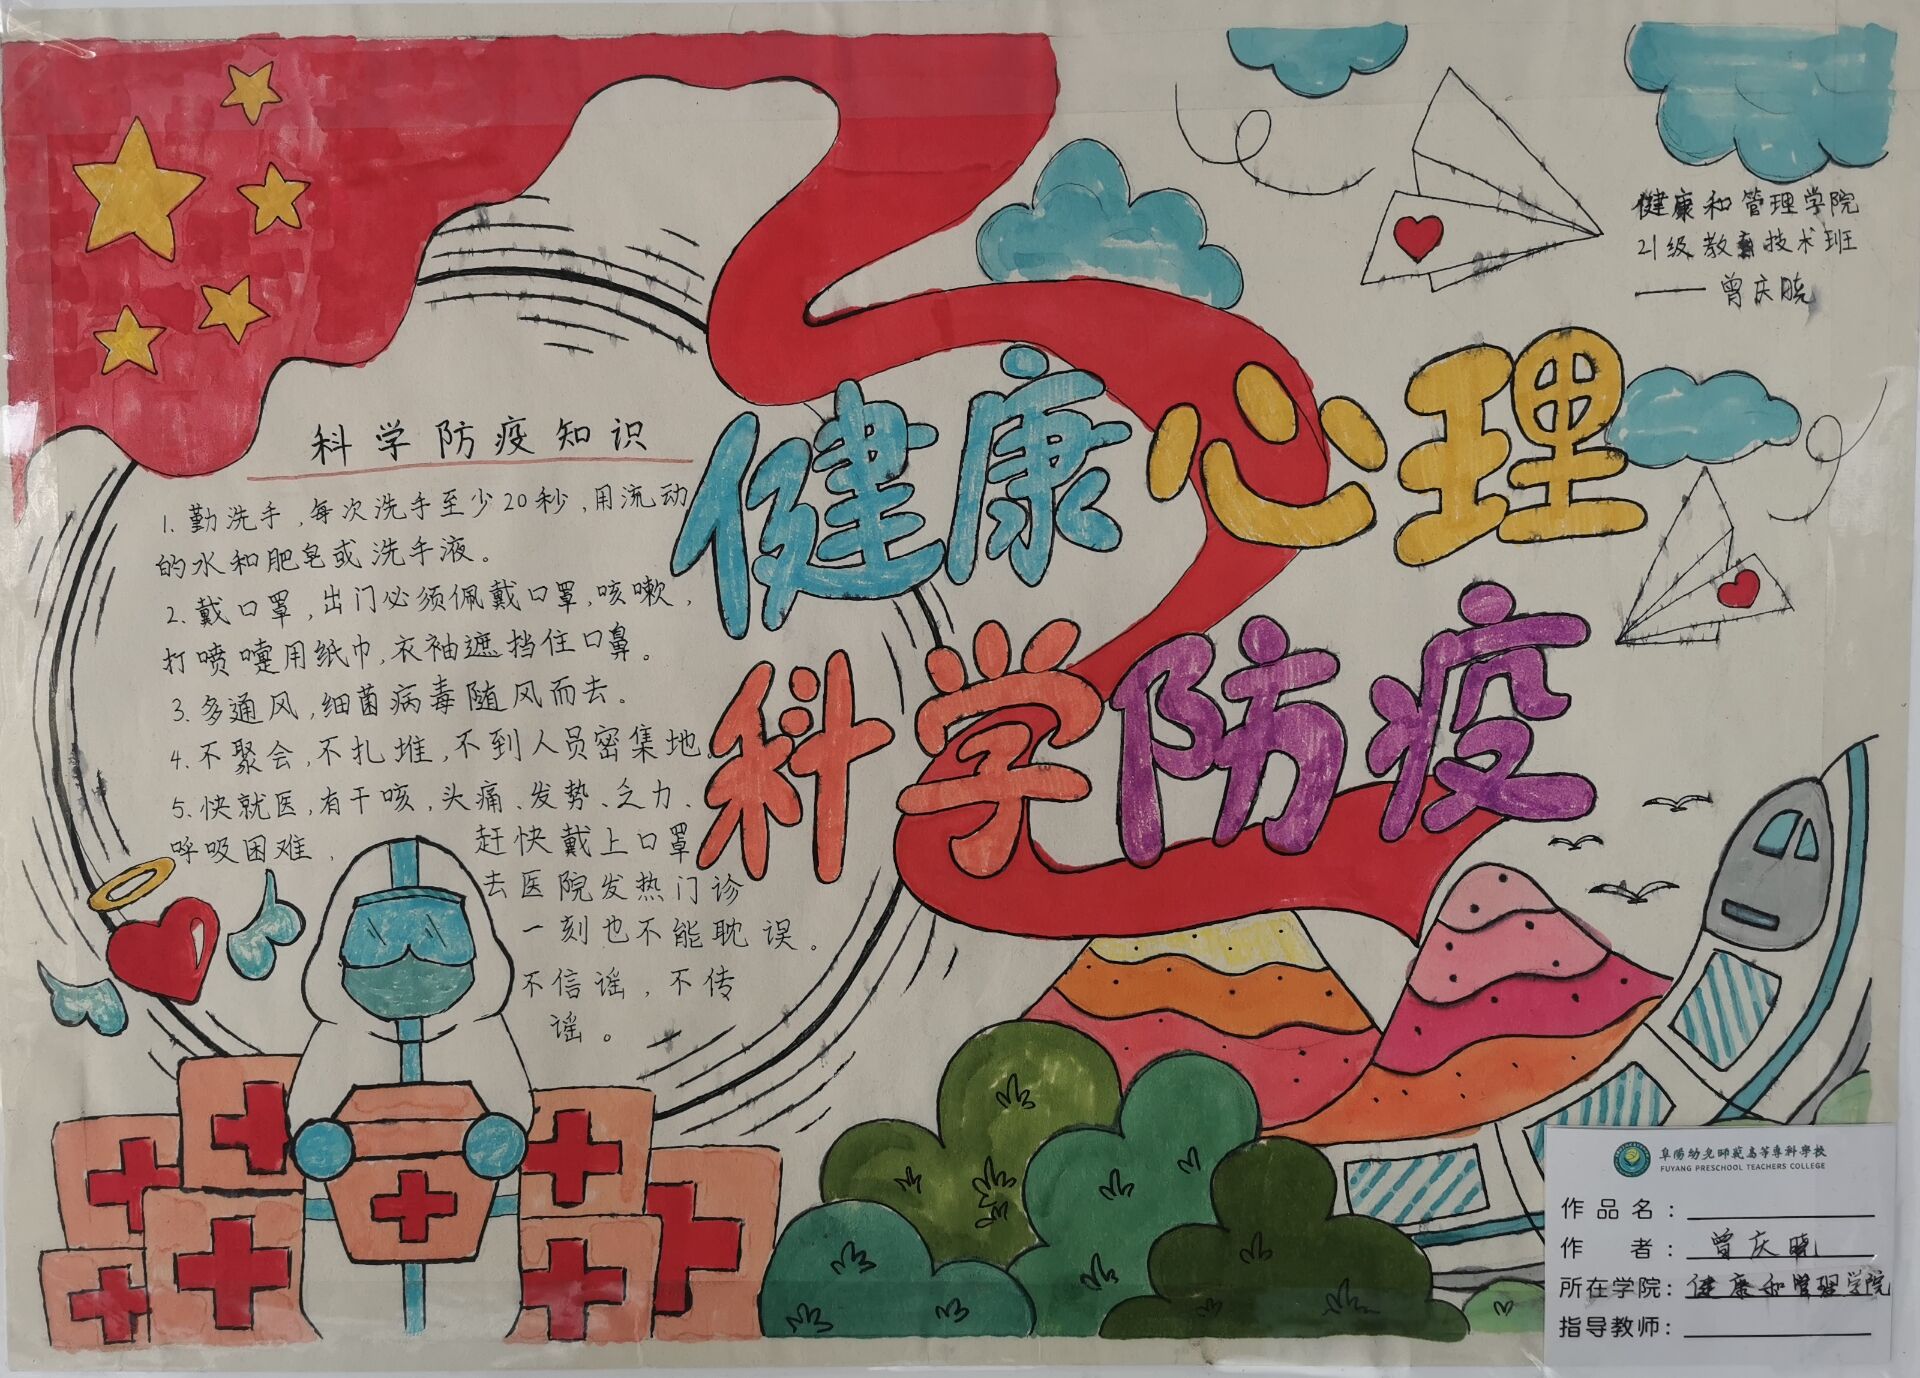 健康和管理学院
21级教育技术班
——曾庆晓
健康心理
科学防疫
科学防疫知识
1.勤洗手,每次洗手至少20秒,用流动
的水和肥皂或洗手液。
2.戴口罩,出门必须佩戴口罩,咳嗽,
打喷嚏用纸巾,衣袖遮挡住口鼻。
3.多通风,细菌病毒随风而去。
4.不聚会,不扎堆,不到人员密集地。
5.快就医,有干咳,头痛、发势、乏力、
呼吸困难,
赶快戴上口罩
去医院发热门诊
一刻也不能耽误。
不信谣,不传
谣。
阜阳幼儿师范高等专科學校
FUYANG PRESCHOOL TEACHERS COLLEGE
作品名:
作 者: 曾庆晓
所在学院: 健康和管理学院
指导教师: